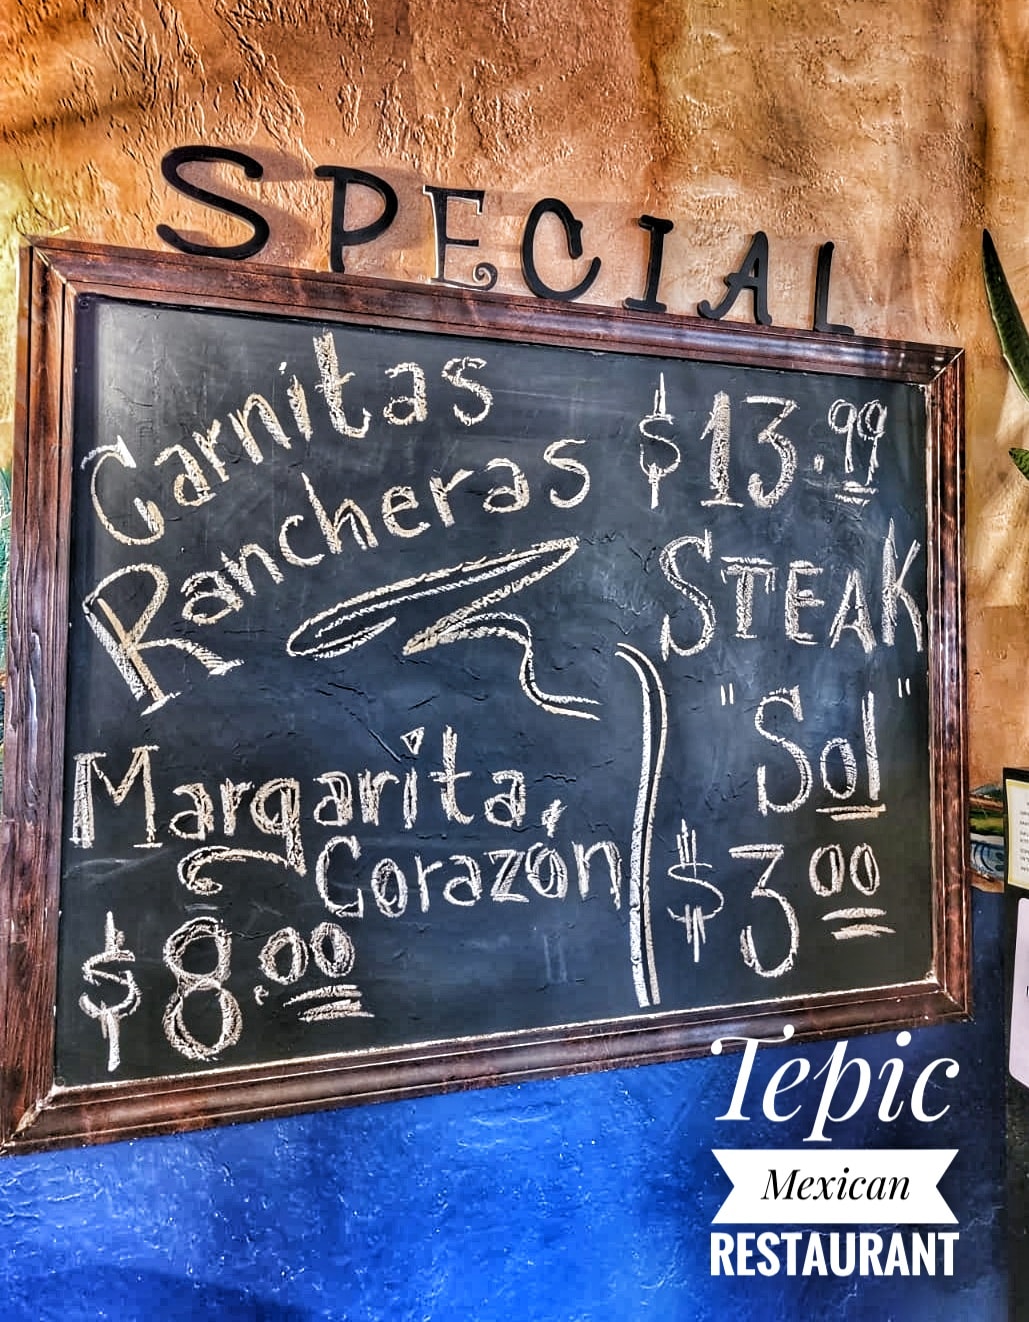 SPECIAL
Carnitas
Rancheras
$13.99
STEAK
Margarita,
Corazón
$8.00
"Sol"
$3.00
Tepic
Mexican
RESTAURANT